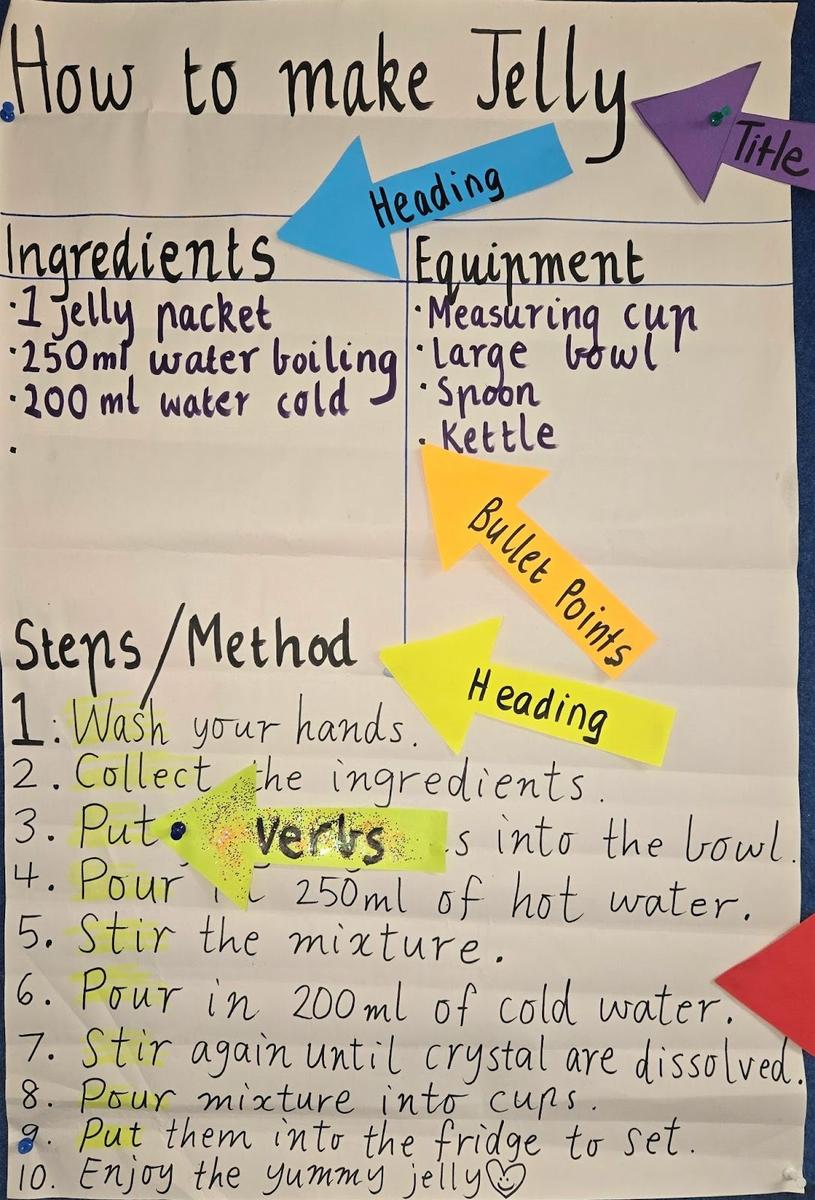 How to make Jelly
Title
Heading
Ingredients
·1 jelly packet
·250ml water boiling
·200 ml water cold
·
Equipment
·Measuring cup
·Large bowl
·Spoon
·Kettle
Bullet Points
Steps/Method
Heading
1. Wash your hands.
2. Collect the ingredients.
3. Put s into the bowl.
verbs
4. Pour in 250ml of hot water.
5. Stir the mixture.
6. Pour in 200ml of cold water.
7. Stir again until crystal are dissolved.
8. Pour mixture into cups.
9. Put them into the fridge to set.
10. Enjoy the yummy jelly